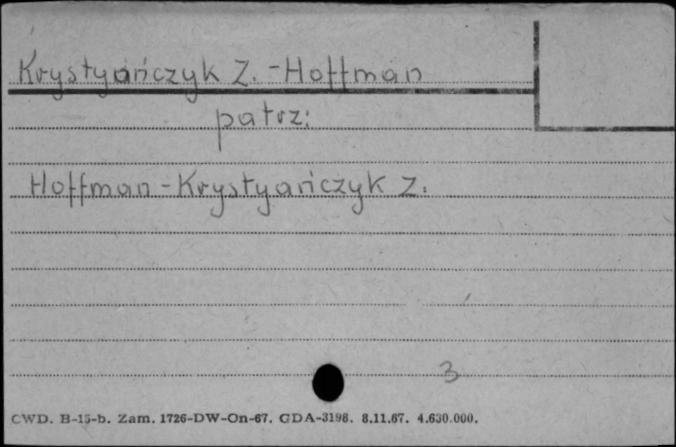 Krystyańczyk Z. - Hoffman
patrz:
Hoffman - Krystyańczyk Z.
3
CWD. B-15-b. Zam. 1726-DW-On-67. GDA-3198. 8.11.67. 4.630.000.